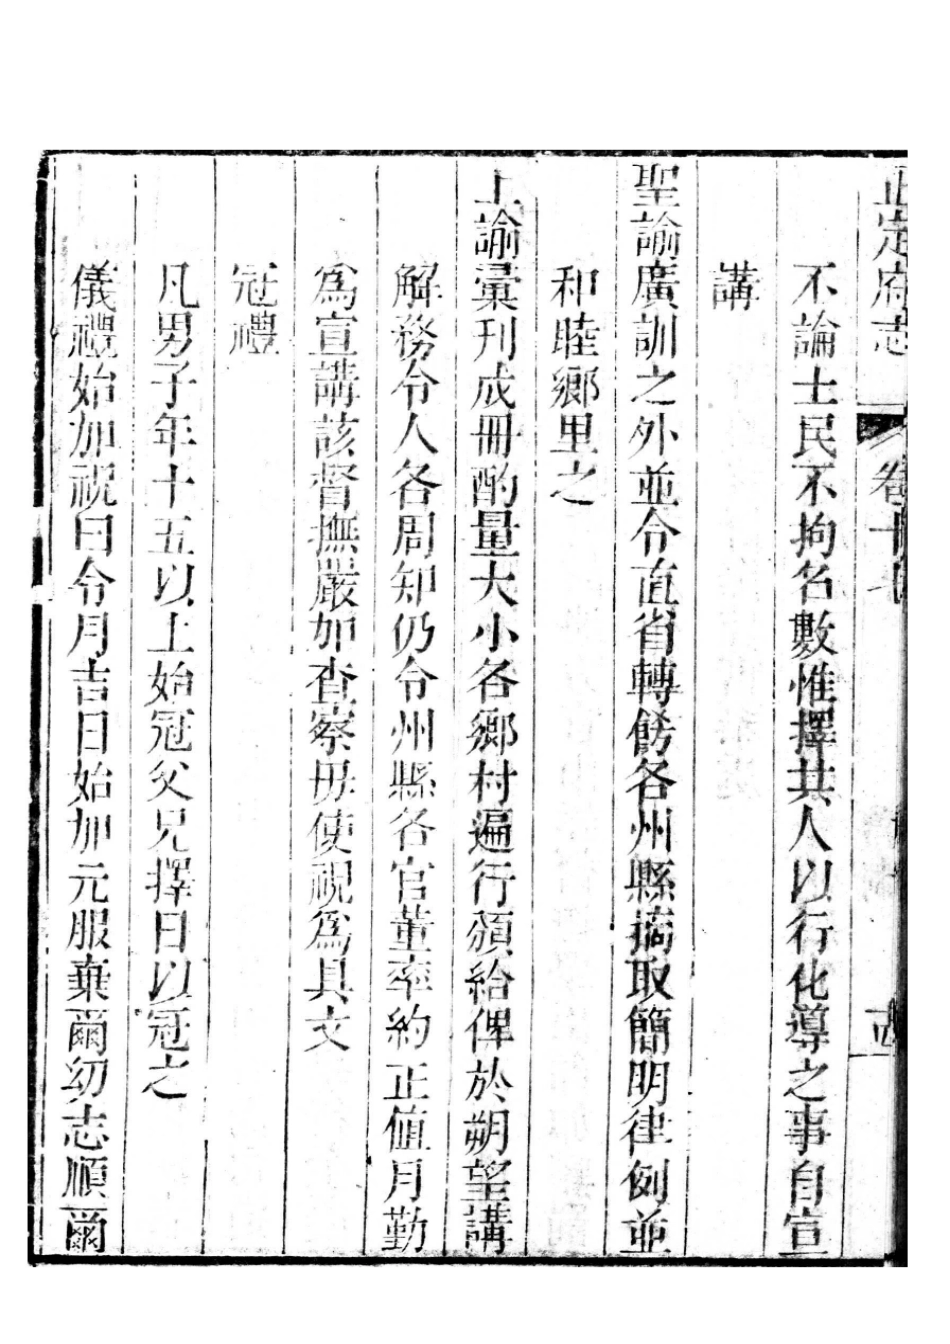 正定府志 卷十
不論士民不拘名數惟擇其人以行化導之事自宣
講
聖諭廣訓之外並令直省轉飭各州縣摘取簡明律例並
和睦鄉里之
上諭彙刊成冊酌量大小各鄉村遍行頒給俾於朔望講
解務令人各周知仍令州縣各官董率約正值月勤
為宣講該督撫嚴加查察毋使視為具文
冠禮
凡男子年十五以上始冠父兄擇日以冠之
儀禮始加祝曰令月吉日始加元服棄爾幼志順爾